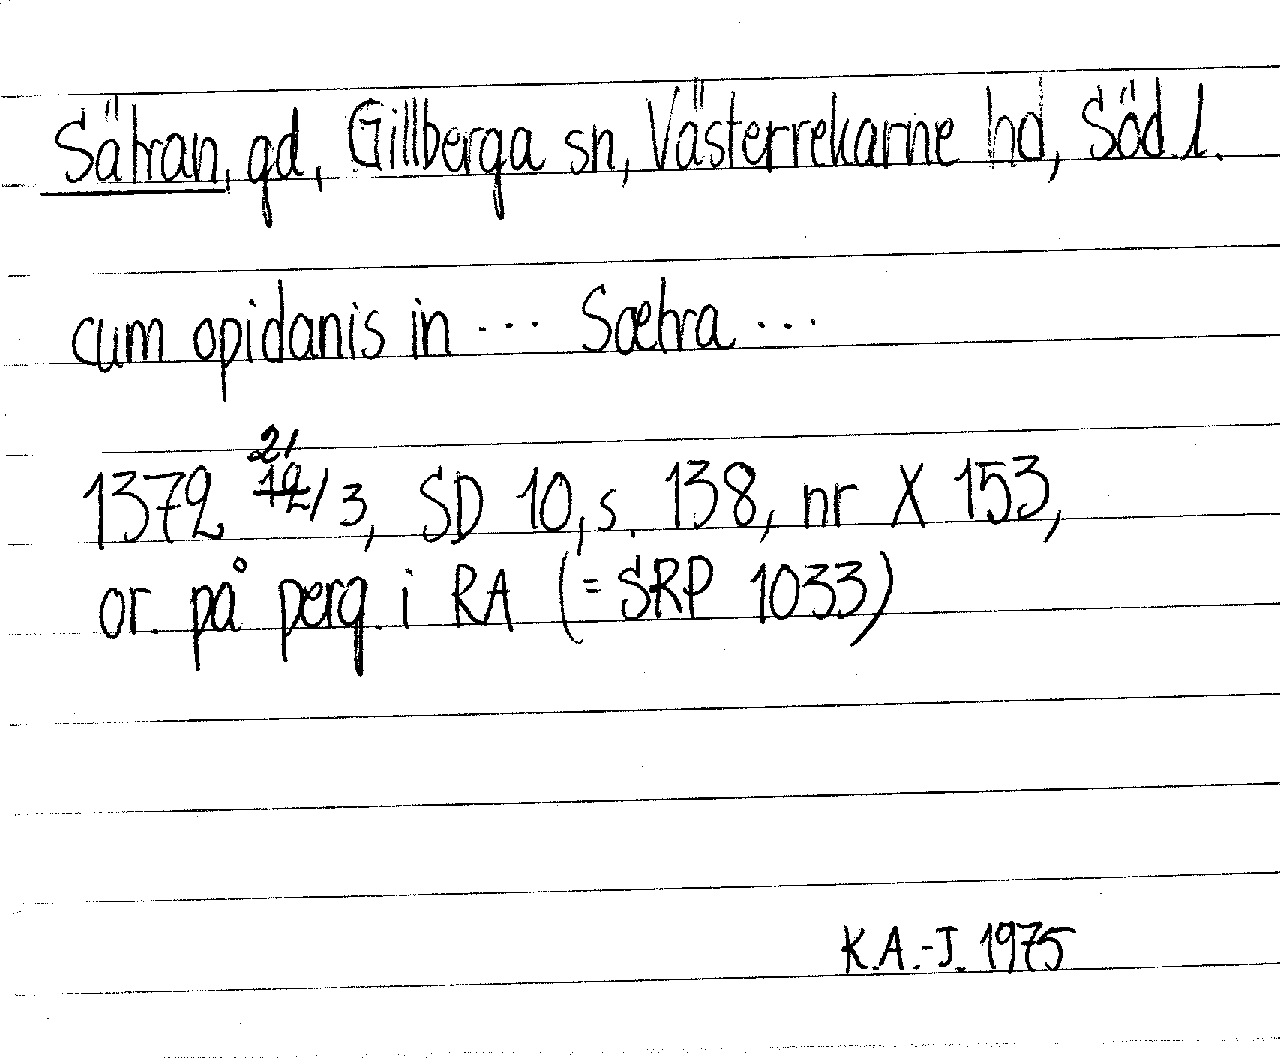 Sätran, gd, Gillberga sn, Västerrekarne hd, Söd.l.
cum opidanis in ... Sætra ...
21
1372 12/3, SD 10, s. 138, nr X 153,
or. på perg. i RA (= SRP 1033)
K.A.-J. 1975